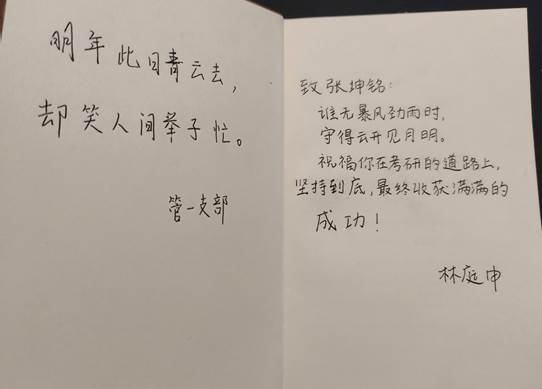 明年此日青云去，
却笑人间举子忙。
管一支部
致张坤铭：
谁无暴风劲雨时，
守得云开见月明。
祝福你在考研的道路上，
坚持到底，最终收获满满的
成功！
林庭申